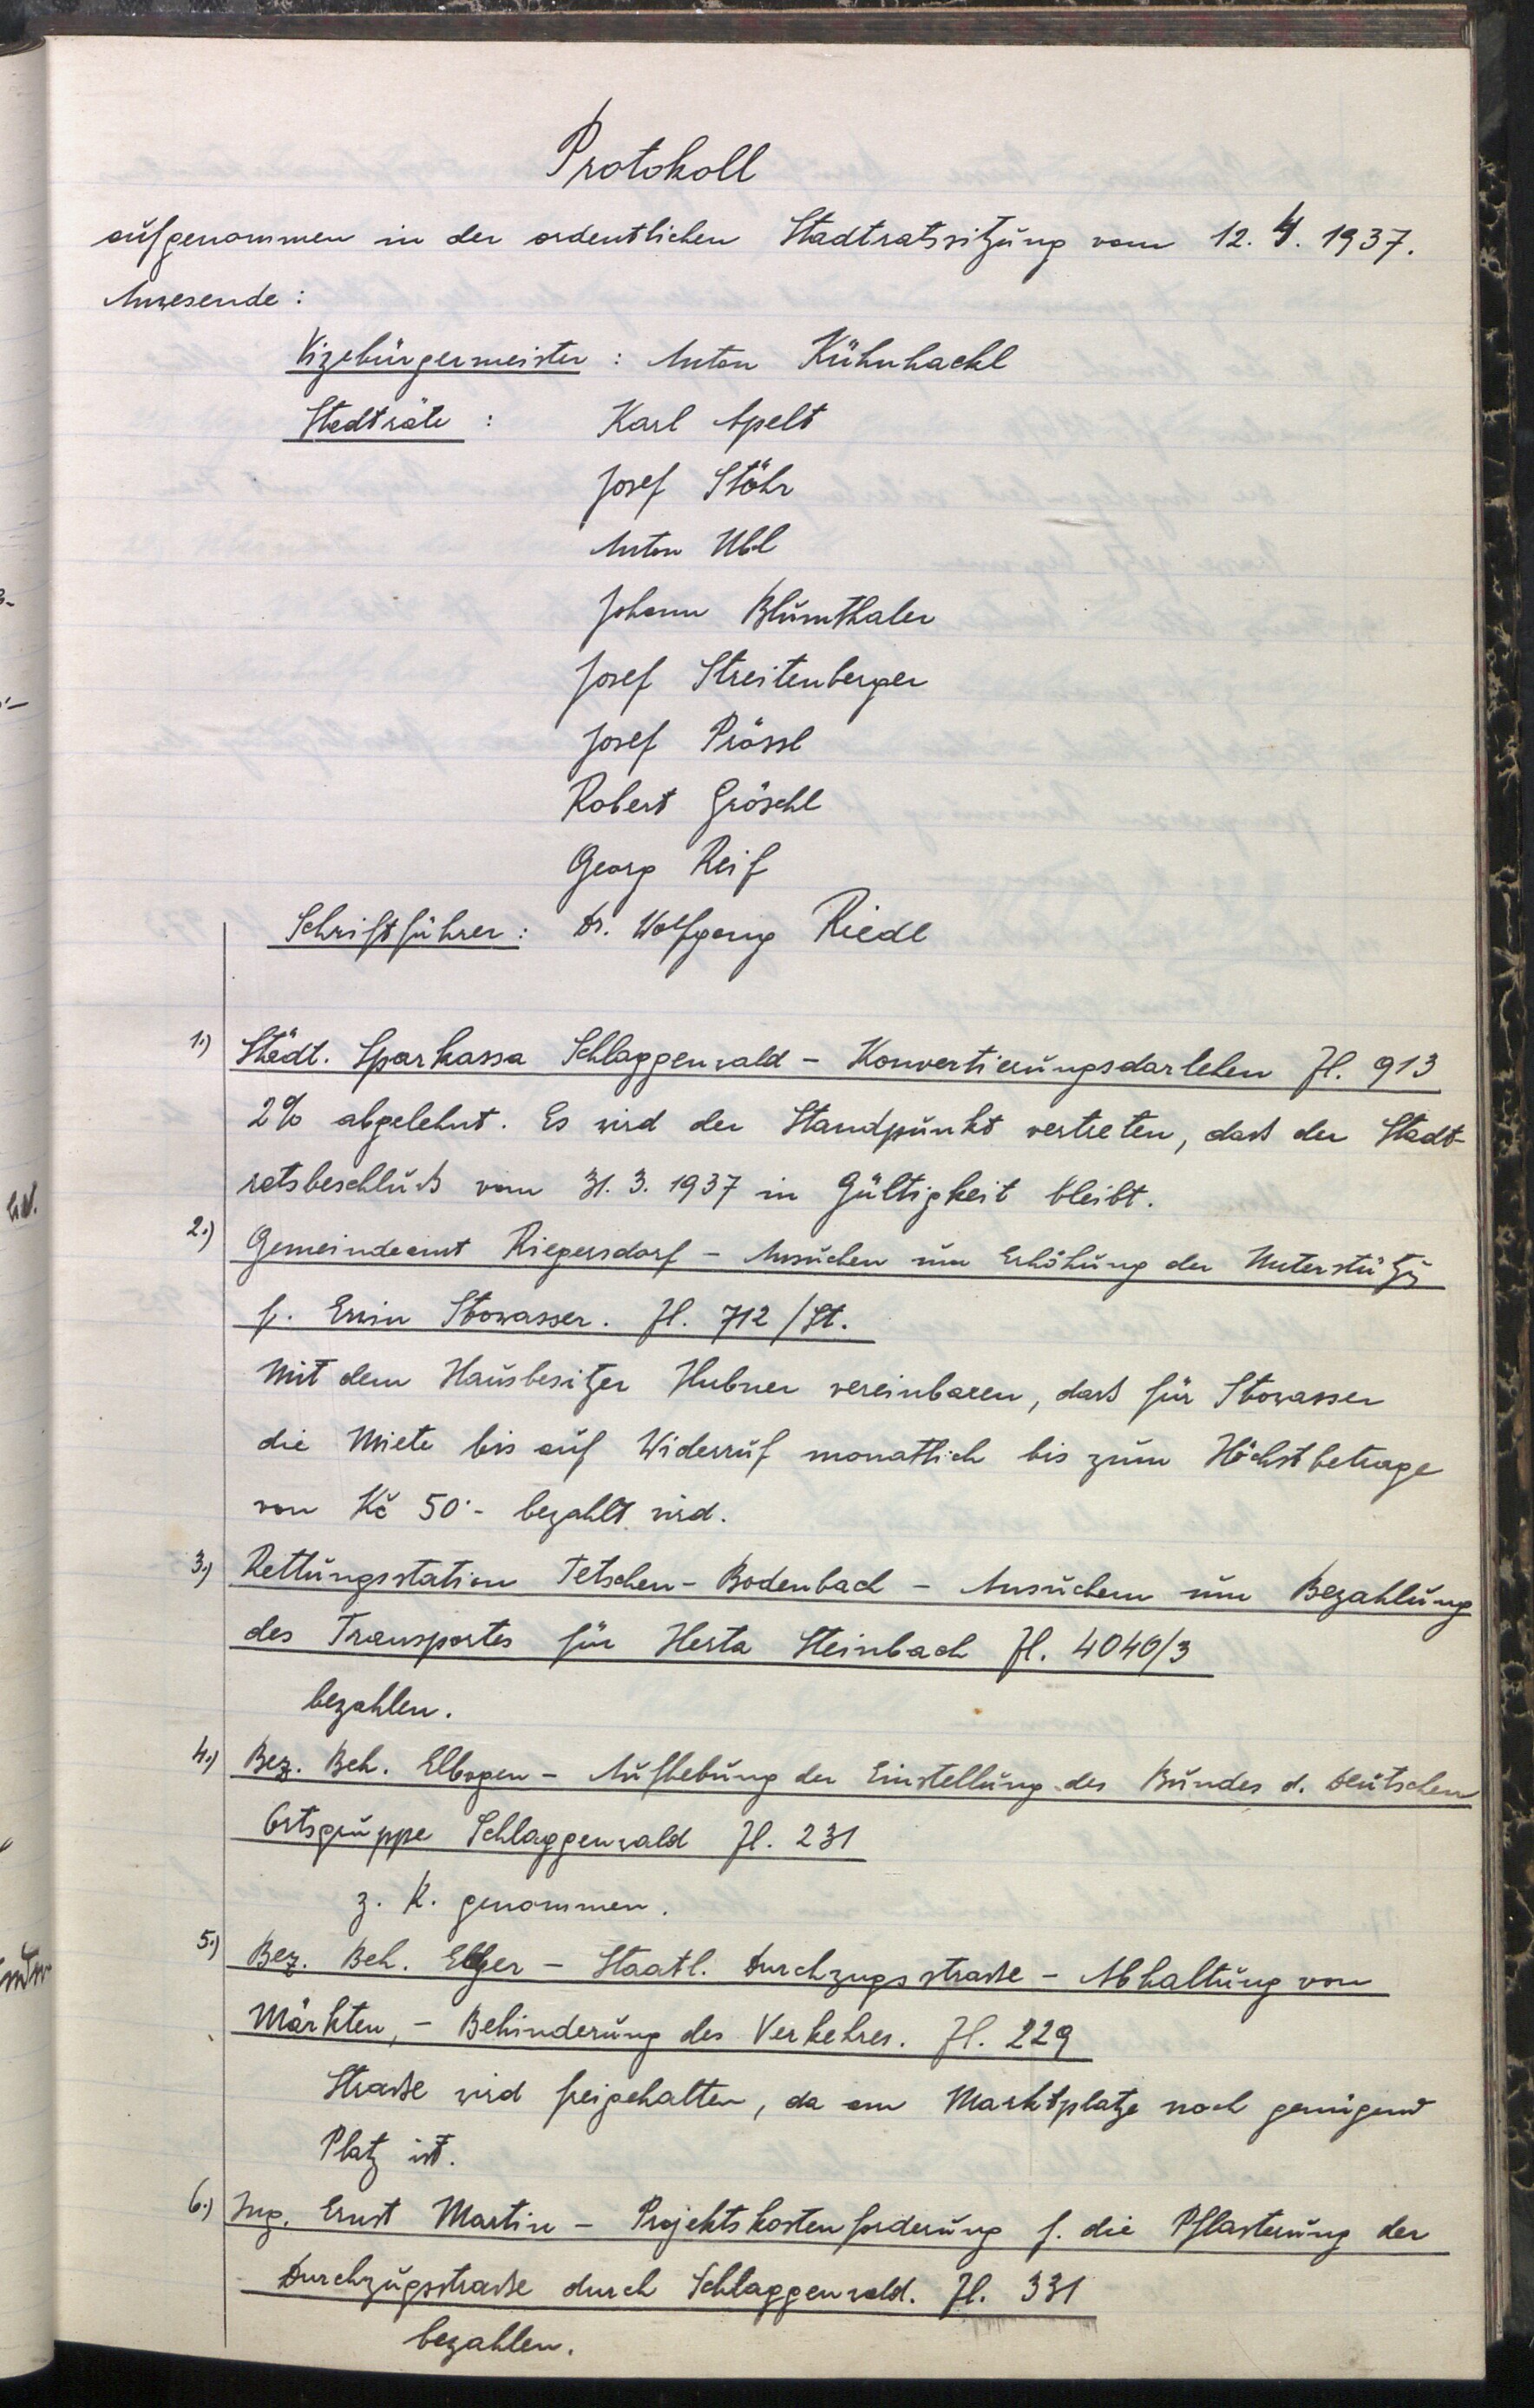 Protokoll
aufgenommen in der ordentlichen Stadtratssitzung vom 12. 4. 1937.
Anwesende:
Vizebürgermeister: Anton Kühnhackl
Stadträte: Karl Apelt
Josef Stöhr
Anton Ubl
Johann Blumthaler
Josef Streitenberger
Josef Prössl
Robert Gröschl
Georg Reif
Schriftführer: Dr. Wolfgang Riedl
1.) Städt. Sparkassa Schlaggenwald - Konvertierungsdarlehen Zl. 913
2% abgelehnt. Es wird der Standpunkt vertreten, dass der Stadt-
ratsbeschluss vom 31. 3. 1937 in Gültigkeit bleibt.
2.) Gemeindeamt Riegersdorf - Ansuchen um Erhöhung der Unterstützg
f. Erwin Stowasser. Zl. 712/St.
Mit dem Hausbesitzer Hubner vereinbaren, dass für Stowasser
die Miete bis auf Widerruf monatlich bis zum Höchstbetrage
von Kč 50·- bezahlt wird.
3.) Rettungsstation Tetschen-Bodenbach - Ansuchen um Bezahlung
des Transportes für Herta Steinbach Zl. 4040/3
bezahlen.
4.) Bez. Beh. Elbogen - Aufhebung der Einstellung des Bundes d. Deutschen
Ortsgruppe Schlaggenwald Zl. 231
z. K. genommen.
5.) Bez. Beh. - Staatl. Durchzugsstrasse - Abhaltung von
Märkten, - Behinderung des Verkehres. Zl. 229
Strasse wird freigehalten, da am Marktplatze noch genügend
Platz ist.
6.) Ing. Ernst Martin - Projektskostenforderung f. die Pflasterung der
Durchzugsstrasse durch Schlaggenwald. Zl. 331
bezahlen.